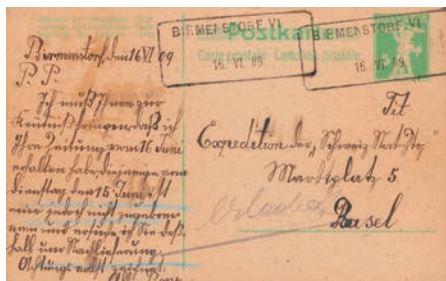 Postkarte
Carte postale Cartolina postale
BIRMENSTORF. VI
16. VI. 09
BIRMENSTORF. VI
16. VI. 09
Birmenstorf, den 16 VI 09
P. P.
Ich muß Ihnen zur
Kentniß bringen, daß ich
Ihre Zeitung vom 16 Juni
erhalten habe, diejenige vom
Dienstag den 15 Juni ist
mir jedoch nicht zugekom
men und ersuche ich Sie deß
halb um Nachlieferung
Achtungsvollst zeichnet
Tit
Expedition der „Schweiz Nat-Ztg"
Marktplatz 5
Basel